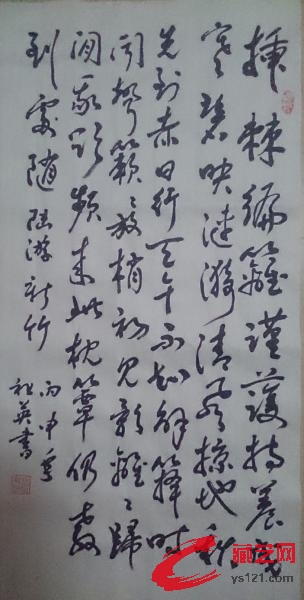 插棘編籬謹護持養成
寒碧映漣漪清風掠地秋
先到赤日行天午不知解籜時
聞聲簌〻放梢初見影離〻歸
閒我欲頻來此枕簟仍教
到處隨 陸游新竹
丙申年
英書
藏艺网
ys121.com